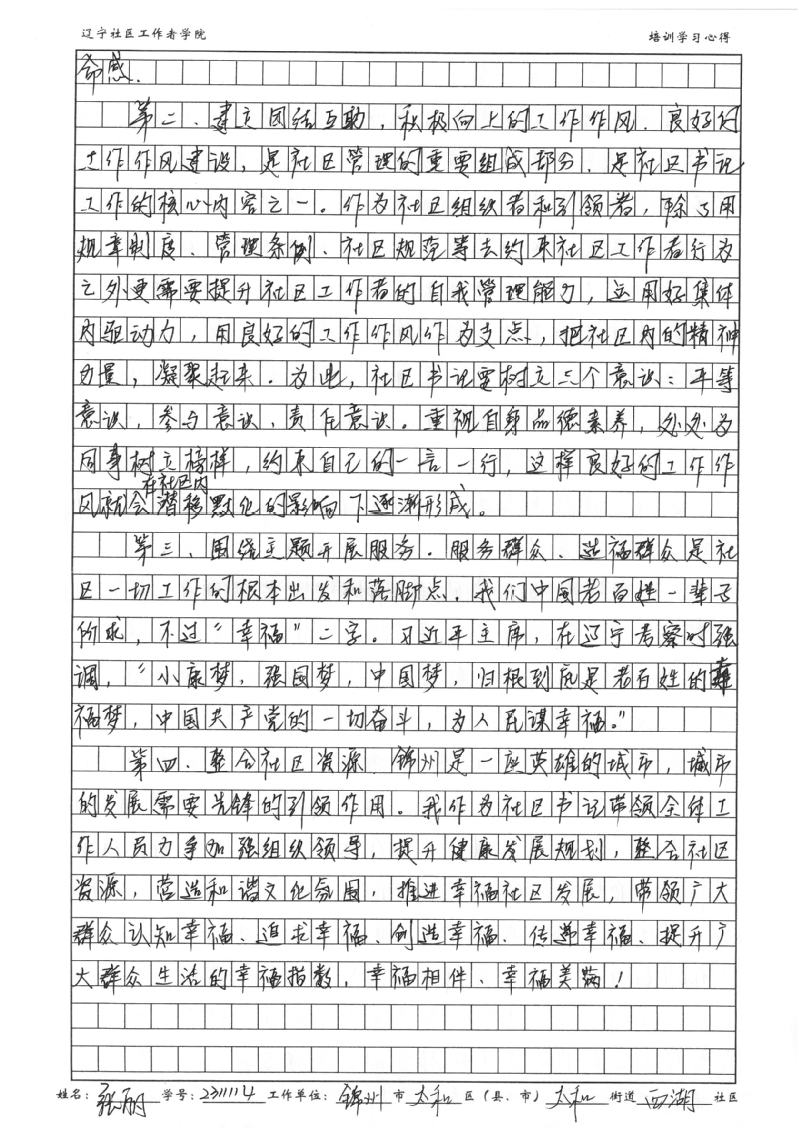 辽宁社区工作者学院 培训学习心得
命感.
第二、建立团结互助，积极向上的工作作风．良好的
工作作风建设，是社区管理的重要组成部分．是社区书记
工作的核心内容之一。作为社区组织者和引领者，除了用
规章制度、管理条例、社区规范等去约束社区工作者行为
之外更需要提升社区工作者的自我管理能力，运用好集体
内驱动力，用良好的工作作风作为支点，把社区内的精神
力量，凝聚起来．为此，社区书记要树立三个意识：平等
意识，参与意识，责任意识。重视自身品德素养，处处为
同事树立榜样，约束自己的一言一行，这样良好的工作作
在社区内
风就会潜移默化的影响下逐渐形成。
第三、围绕主题开展服务．服务群众、造福群众是社
区一切工作的根本出发和落脚点．我们中国老百姓一辈子
所求，不过“幸福”二字。习近平主席，在辽宁考察时强
调，“小康梦，强国梦，中国梦，归根到底是老百姓的幸
福梦，中国共产党的一切奋斗，为人民谋幸福。”
第四、整合社区资源．锦州是一座英雄的城市，城市
的发展需要先锋的引领作用。我作为社区书记带领全体工
作人员力争加强组织领导，提升健康发展规划，整合社区
资源，营造和谐文化氛围，推进幸福社区发展，带领广大
群众认知幸福、追求幸福、创造幸福、传递幸福、提升广
大群众生活的幸福指数，幸福相伴、幸福美满！
姓名：张丽 学号：2311114 工作单位：锦州 市 太和 区（县、市） 太和 街道 西湖 社区